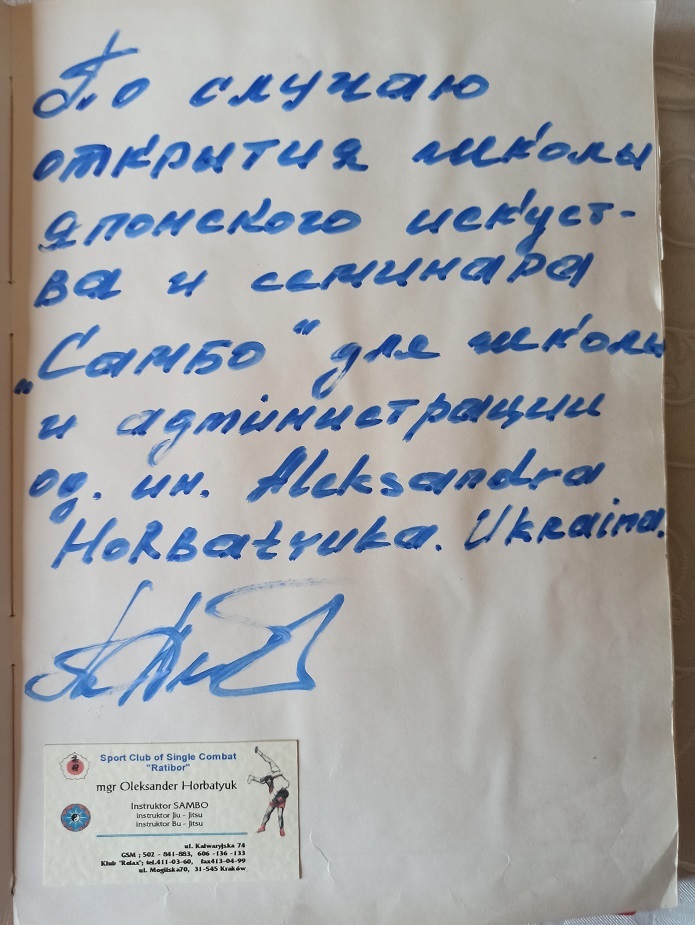 По случаю
открытия школы
японского искуст-
ва и семинара
"Самбо" для школы
и администрации
од. ин. Aleksandra
Horbatyuka. Ukraina.
Sport Club of Single Combat
"Ratibor"
mgr Oleksander Horbatyuk
Instruktor SAMBO
instruktor Jiu - Jitsu
instruktor Bu - Jitsu
ul. Kalwaryjska 74
GSM ; 502 - 841-883, 606 -136 -133
Klub "Relax"; tel.411-03-60, fax413-04-99
ul. Mogilska70, 31-545 Kraków